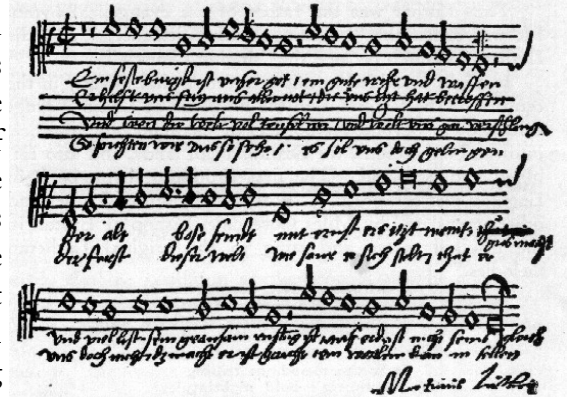 Ein feste burgk ist unser got / ein gute wehr und waffen
Er hilft uns frey aus aller not / die uns itzt hat betroffen
Und wen die welt vol teuffel wer / und wolt uns gar verschling
So furchten wir uns so sehr / es sol uns doch gelingen
Der alt bose feindt mit ernst ers itzt meint macht
der furst dieser welt wie saur er sich stelt that er
und viel list sein grausam rustung ist auf erd ist nicht seins gleich
uns doch nicht macht er ist gericht ein wortlin kan in fellen
Luther